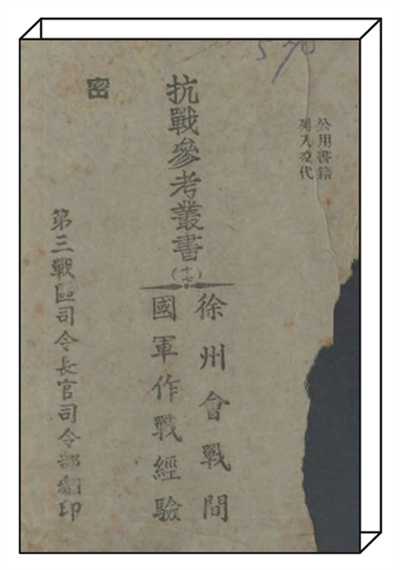 公用書籍
列入交代
抗戰參考叢書
(十七)
徐州會戰間
國軍作戰經驗
密
第三戰區司令長官司令部編印
570